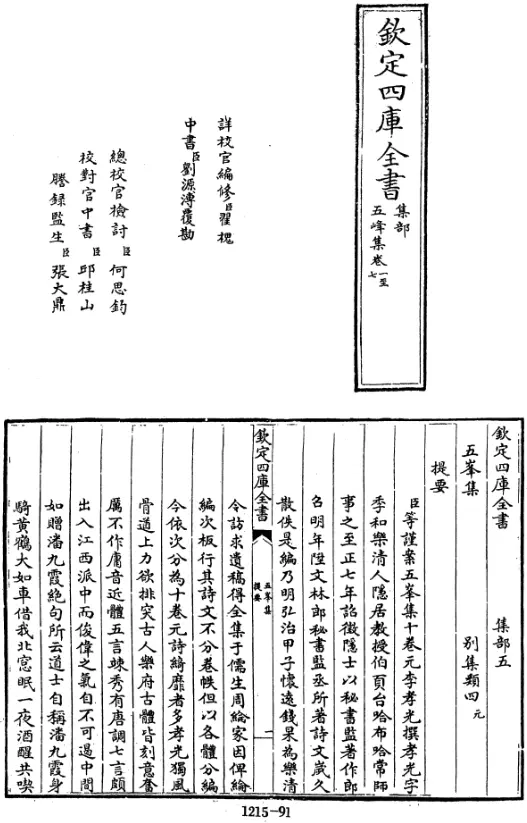 欽定四庫全書
集部
五峰集卷一至七
詳校官編修臣翟槐
中書臣劉源溥覆勘
總校官檢討臣何思鈞
校對官中書臣邱桂山
謄録監生臣張大鼎
欽定四庫全書　集部五
五峯集　別集類四元
提要
臣等謹案五峯集十卷元李孝光撰孝光字
季和樂清人隱居教授伯頁台哈布哈常師
事之至正七年詔徴隱士以秘書監著作郎
召明年陞文林郎秘書監丞所著詩文嵗久
散佚是編乃明弘治甲子懷遠錢杲為樂清
欽定四庫全書
五峯集
提要
一
令訪求遺稿得全集于儒生周綸家因俾綸
編次板行其詩文不分卷帙但以各體分編
今依次分為十卷元詩綺靡者多孝光獨風
骨遒上力欲排突古人樂府古體皆刻意奮
厲不作庸音近體五言竦秀有唐調七言頗
出入江西派中而俊偉之氣自不可遏中間
如贈潘九霞絶句所云道士自稱潘九霞身
騎黄鶴大如車借我北窓眠一夜酒醒共喫
1215-91